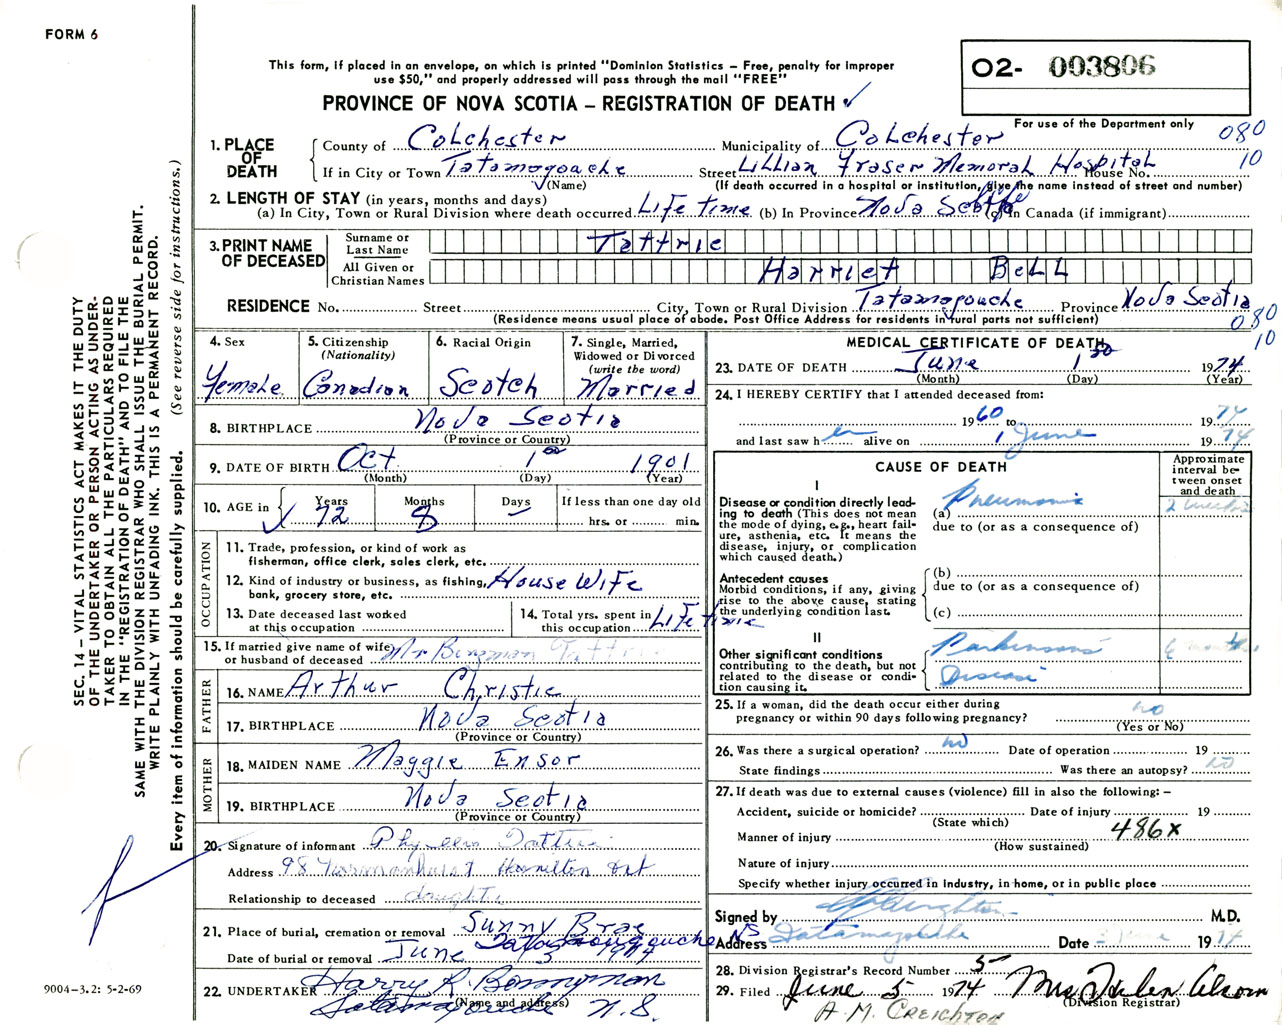 FORM 6
This form, if placed in an envelope, on which is printed "Dominion Statistics – Free, penalty for improper
use $50," and properly addressed will pass through the mail "FREE"
PROVINCE OF NOVA SCOTIA – REGISTRATION OF DEATH ✓
O2- 003806
For use of the Department only
080
10
1. PLACE OF DEATH
County of Colchester Municipality of Colchester
If in City or Town Tatamagouche Street Lillian Fraser Memoral Hospital House No.
(Name) (If death occurred in a hospital or institution, give the name instead of street and number)
2. LENGTH OF STAY (in years, months and days)
(a) In City, Town or Rural Division where death occurred Life time (b) In Province Nova Scotia (c) In Canada (if immigrant)
3. PRINT NAME OF DECEASED
Surname or Last Name Tattrie
All Given or Christian Names Harriet Bell
RESIDENCE No. Street City, Town or Rural Division Tatamagouche Province Nova Scotia
(Residence means usual place of abode. Post Office Address for residents in rural parts not sufficient)
080
10
4. Sex Female
5. Citizenship (Nationality) Canadian
6. Racial Origin Scotch
7. Single, Married, Widowed or Divorced (write the word) Married
8. BIRTHPLACE Nova Scotia
(Province or Country)
9. DATE OF BIRTH Oct 1 1901
(Month) (Day) (Year)
10. AGE in Years Months Days If less than one day old
72 8 hrs. or min.
OCCUPATION
11. Trade, profession, or kind of work as
fisherman, office clerk, sales clerk, etc.
12. Kind of industry or business, as fishing, House Wife
bank, grocery store, etc.
13. Date deceased last worked
at this occupation
14. Total yrs. spent in
this occupation Life time
15. If married give name of wife
or husband of deceased Mr Tattrie
FATHER
16. NAME Arthur Christie
17. BIRTHPLACE Nova Scotia
(Province or Country)
MOTHER
18. MAIDEN NAME Maggie Ensor
19. BIRTHPLACE Nova Scotia
(Province or Country)
20. Signature of informant Phyllis Tattrie
Address 98 Hamilton Ont
Relationship to deceased daughter
21. Place of burial, cremation or removal Sunny Brae
Tatamagouche NS
Date of burial or removal June 3 1974
22. UNDERTAKER Harry R. Bonnyman
(Name and address)
Tatamagouche N.S.
MEDICAL CERTIFICATE OF DEATH
23. DATE OF DEATH June 1 1974
(Month) (Day) (Year)
24. I HEREBY CERTIFY that I attended deceased from:
1960 to 1974
and last saw her alive on 1 June 1974
CAUSE OF DEATH
Approximate interval between onset and death
I
Disease or condition directly lead-
ing to death (This does not mean
the mode of dying, e.g., heart fail-
ure, asthenia, etc. It means the
disease, injury, or complication
which caused death.)
(a) Pneumonia 2 weeks
due to (or as a consequence of)
Antecedent causes
Morbid conditions, if any, giving
rise to the above cause, stating
the underlying condition last.
(b)
due to (or as a consequence of)
(c)
II
Other significant conditions
contributing to the death, but not
related to the disease or condi-
tion causing it.
Parkinsons 6 months
Disease
25. If a woman, did the death occur either during
pregnancy or within 90 days following pregnancy? no
(Yes or No)
26. Was there a surgical operation? no Date of operation 19
State findings Was there an autopsy? no
27. If death was due to external causes (violence) fill in also the following: –
Accident, suicide or homicide? Date of injury 19
(State which)
Manner of injury 486x
(How sustained)
Nature of injury
Specify whether injury occurred in Industry, in home, or in public place
Signed by Creighton M.D.
Address Tatamagouche Date June 1974
28. Division Registrar's Record Number 5
29. Filed June 5 1974 Mrs
(Division Registrar)
A. M. CREIGHTON
SEC. 14 – VITAL STATISTICS ACT MAKES IT THE DUTY
OF THE UNDERTAKER OR PERSON ACTING AS UNDER-
TAKER TO OBTAIN ALL THE PARTICULARS REQUIRED
IN THE "REGISTRATION OF DEATH" AND TO FILE THE
SAME WITH THE DIVISION REGISTRAR WHO SHALL ISSUE THE BURIAL PERMIT.
WRITE PLAINLY WITH UNFADING INK. THIS IS A PERMANENT RECORD.
Every item of information should be carefully supplied. (See reverse side for instructions.)
9004-3.2: 5-2-69